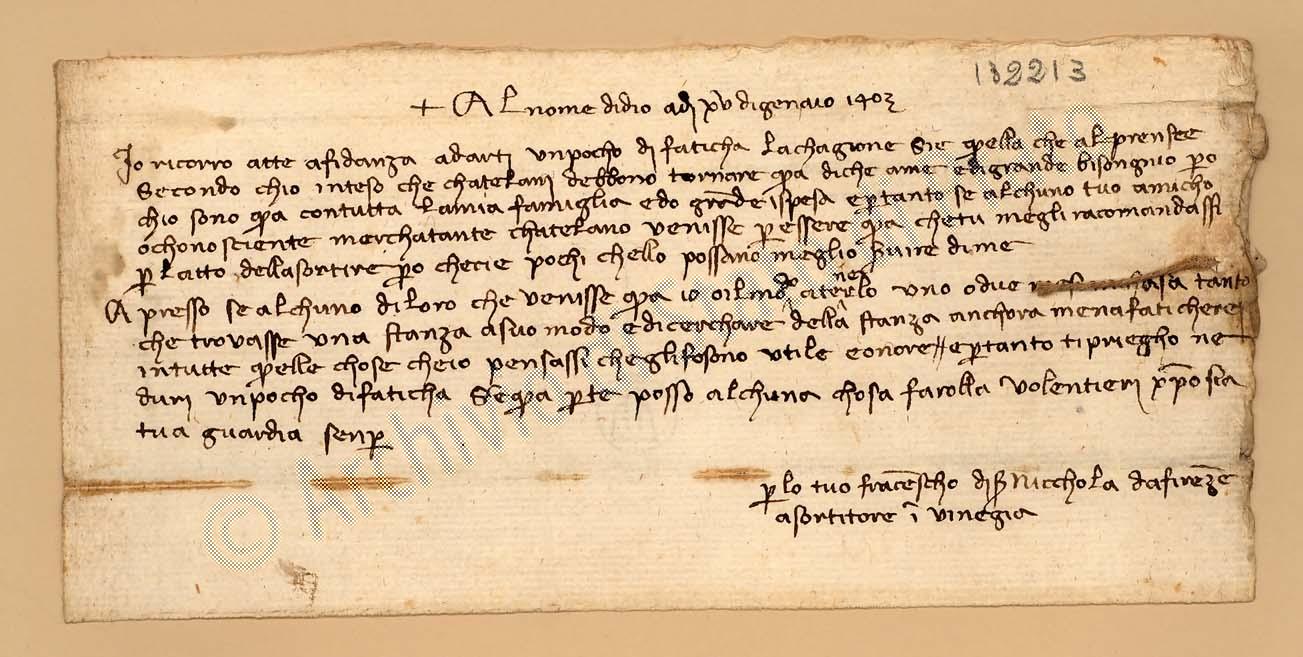 132213
+ Al nome didio adj xv di genaio 1403
Io ricorro atte afidanza adarti unpocho di faticha lachagione sie quella che al prensee
Secondo chio inteso che chatelani debbono tornare qua diche ame edi grande bisongnio po
chio sono qua contutta lamia famiglia e do grande ispesa e pertanto se alchuno tuo amicho
o chonosciente merchatante chatelano venisse per essere qua chetu megli racomandassi
per latto dellasortire po checie pochi chello possano meglio servire di me
Apresso se alchuno di loro che venisse qua io uno o due asa tanto
che trovasse una stanza asuo modo e dicerchare della stanza anchora menafaticherei
intutte quelle chose cheio pensassi cheglifosono utile e onore // e pertanto ti priegho ne
duri unpocho di faticha Sequa per te posso alchuna chosa farolla volentieri xpo sia
tua guardia senper
per lo tuo francescho di ser Nicchola dafirenze
asortitore i vinegia
© Archivio di Stato di Prato